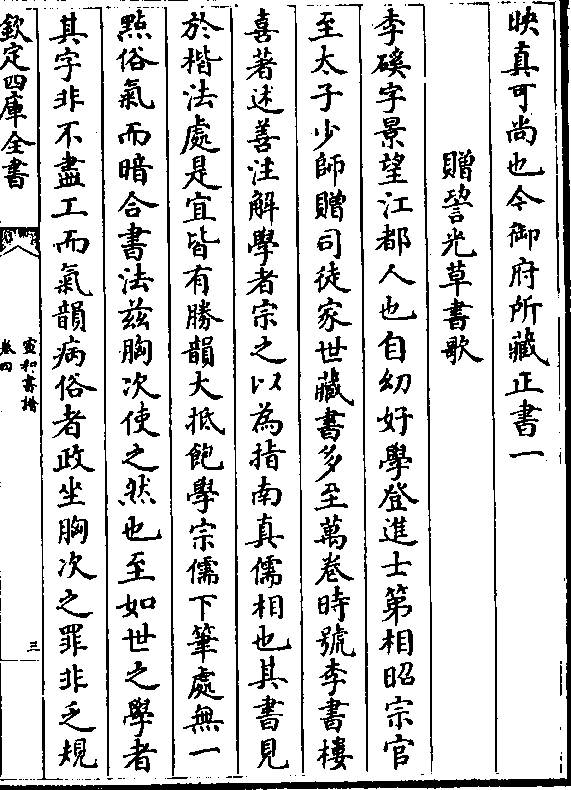 映真可尚也今御府所藏正書一
贈㘞光草書歌
李磎字景望江都人也自幼好學登進士第相昭宗官
至太子少師贈司徒家世藏書多至萬卷時號李書樓
喜著述善注解學者宗之以為指南真儒相也其書見
於楷法處是宜皆有勝韻大抵飽學宗儒下筆處無一
㸃俗氣而暗合書法兹胸次使之然也至如世之學者
其字非不盡工而氣韻病俗者政坐胸次之罪非乏規
欽定四庫全書
宣和書譜
卷四
三